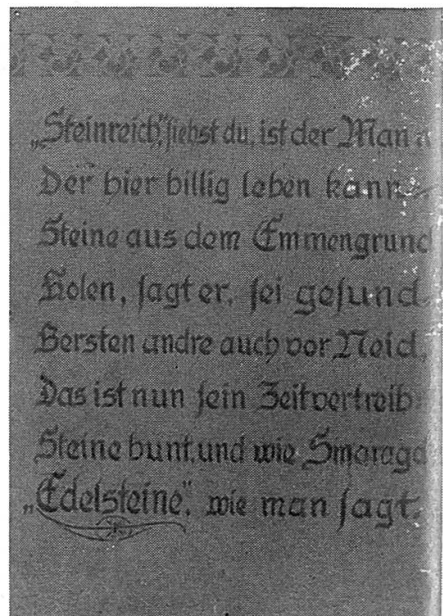 „Steinreich“, siehst du, ist der Man
Der hier billig leben kann
Steine aus dem Emmengrund
Holen, sagt er, sei gesund.
Bersten andre auch vor Neid,
Das ist nun sein Zeitvertreib:
Steine bunt und wie Smaragd
„Edelsteine“, wie man sagt.